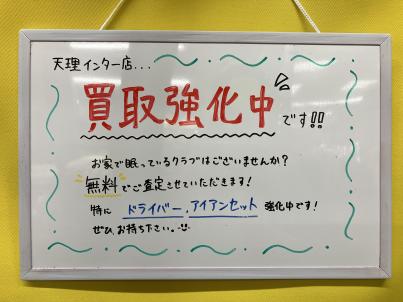 天理インター店...
買取強化中です!!
お家で眠っているクラブはございませんか?
無料でご査定させていただきます!
特に ドライバー、アイアンセット 強化中です!
ぜひ、お持ち下さい。